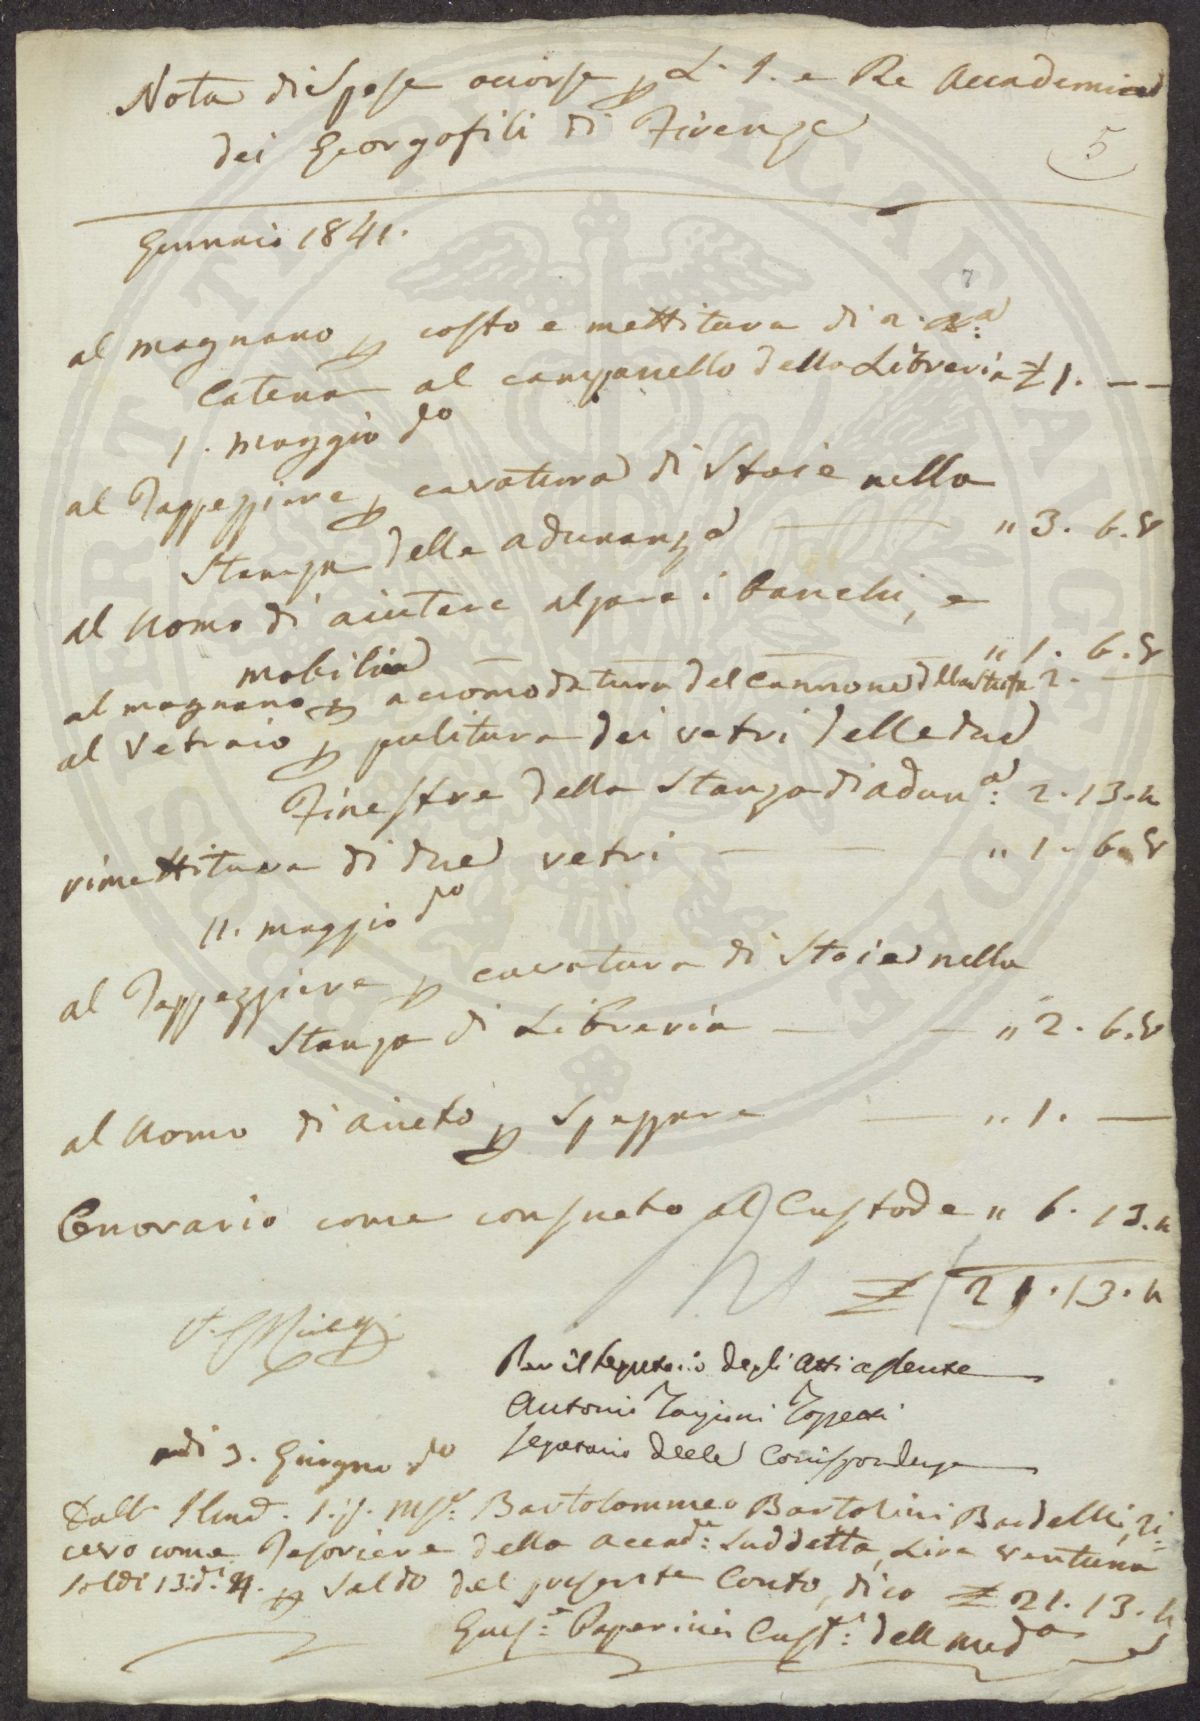 Nota di Spese occorse p L. I. e Re Accademia
dei Georgofili di Firenze
5
Gennaio 1841.
7
al magnano p costo e mettitura di n.
Catena al campanello della Libreria £ 1. — —
1. Maggio do
al Tappezziere p cavatura di Stoie nella
Stanza delle adunanze — " 3. 6. 8
al Uomo di aiutare alzare i banchi, e
mobilia — — — " 1. 6. 8
al magnano p accomodatura del Cannone della Stufa 2. —
al Vetraio p pulitura dei vetri delle due
Finestre della Stanza di adun.a 2. 13. 4
rimettitura di due vetri — — — " 1. 6. 8
11. maggio do
al Tappezziere p cavatura di Stoie nella
Stanza di Libreria — — " 2. 6. 8
al Uomo di aiuto p Spazzare — " 1. —
Onorario come consueto al Custode " 6. 13. 4
£ 21. 13. 4
Per il Segretario degli Atti assente
Antonio Targioni Tozzetti
Segretario delle Corrispondenze
adi 3. Giugno do
Dall Illmo. Sig. Bartolommeo Bartolini Baldelli, ri=
cevo come Tesoriere della Accad.a Suddetta, Lire ventuna
Soldi 13: d. 4. p Saldo del presente Conto, dico £ 21. 13. 4
Gius.e Paperini Cust.e dell Meda